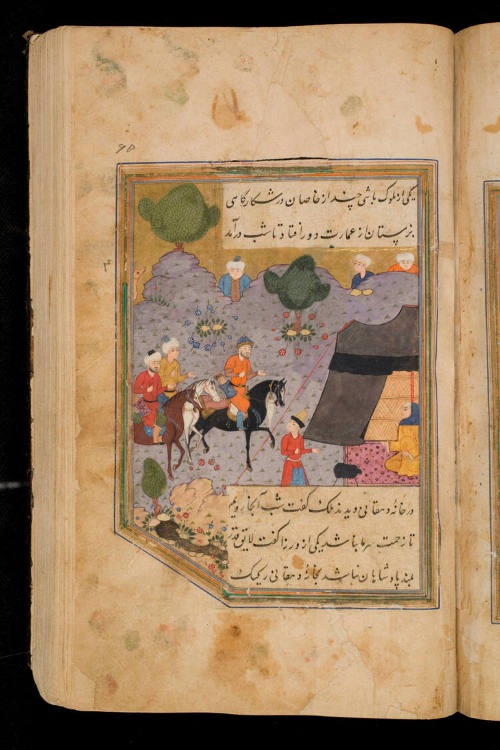 ۶۵
یکی از ملوک باتنی چند از خاصان در شکارگاهی
بزمستان از عمارت دور افتاد تا شب درآمد
در خانهٔ دهقانی دیدند ملک گفت شب آنجا رویم
تا زحمت سرما نباشد یکی از وزرا گفت لایق قدر
بلند پادشاهان نباشد بخانهٔ دهقانی رکیک